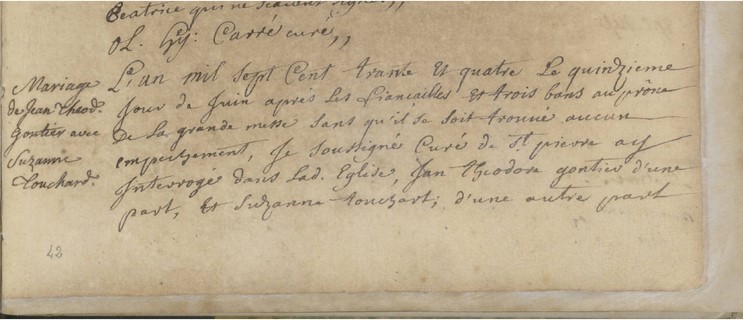 Beatrice qui ne scavent signé.,,
Carré curé,,
Mariage
de Jean Theod.
Gontier avec
Suzanne
Touchard.
L'an mil sept Cent trante et quatre Le quinzieme
Jour de Juin aprés Les fiancailles et trois bans au prône
De La grande messe sans qu'il se soit trouué aucun
empeschement, Je soussigné Curé de St pierre ay
Interrogé dans Lad. Eglise, Jan Theodore gontier d'une
part, et Suzanne touchart; d'une autre part
42